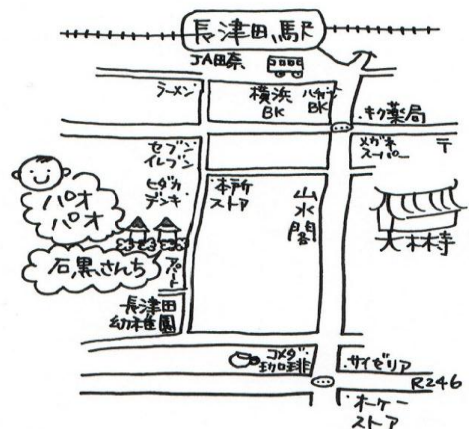 長津田駅
JA田奈
ラーメン
横浜
BK
ハガシ
BK
キク薬局
セブン
イレブン
メガネ
スーパー
〒
ヒダカ
デンキ
本所
ストア
山水閣
大林寺
パオ
パオ
石黒さんち
アパート
長津田
幼稚園
コメダ
珈琲
サイゼリア
R246
オーケー
ストア